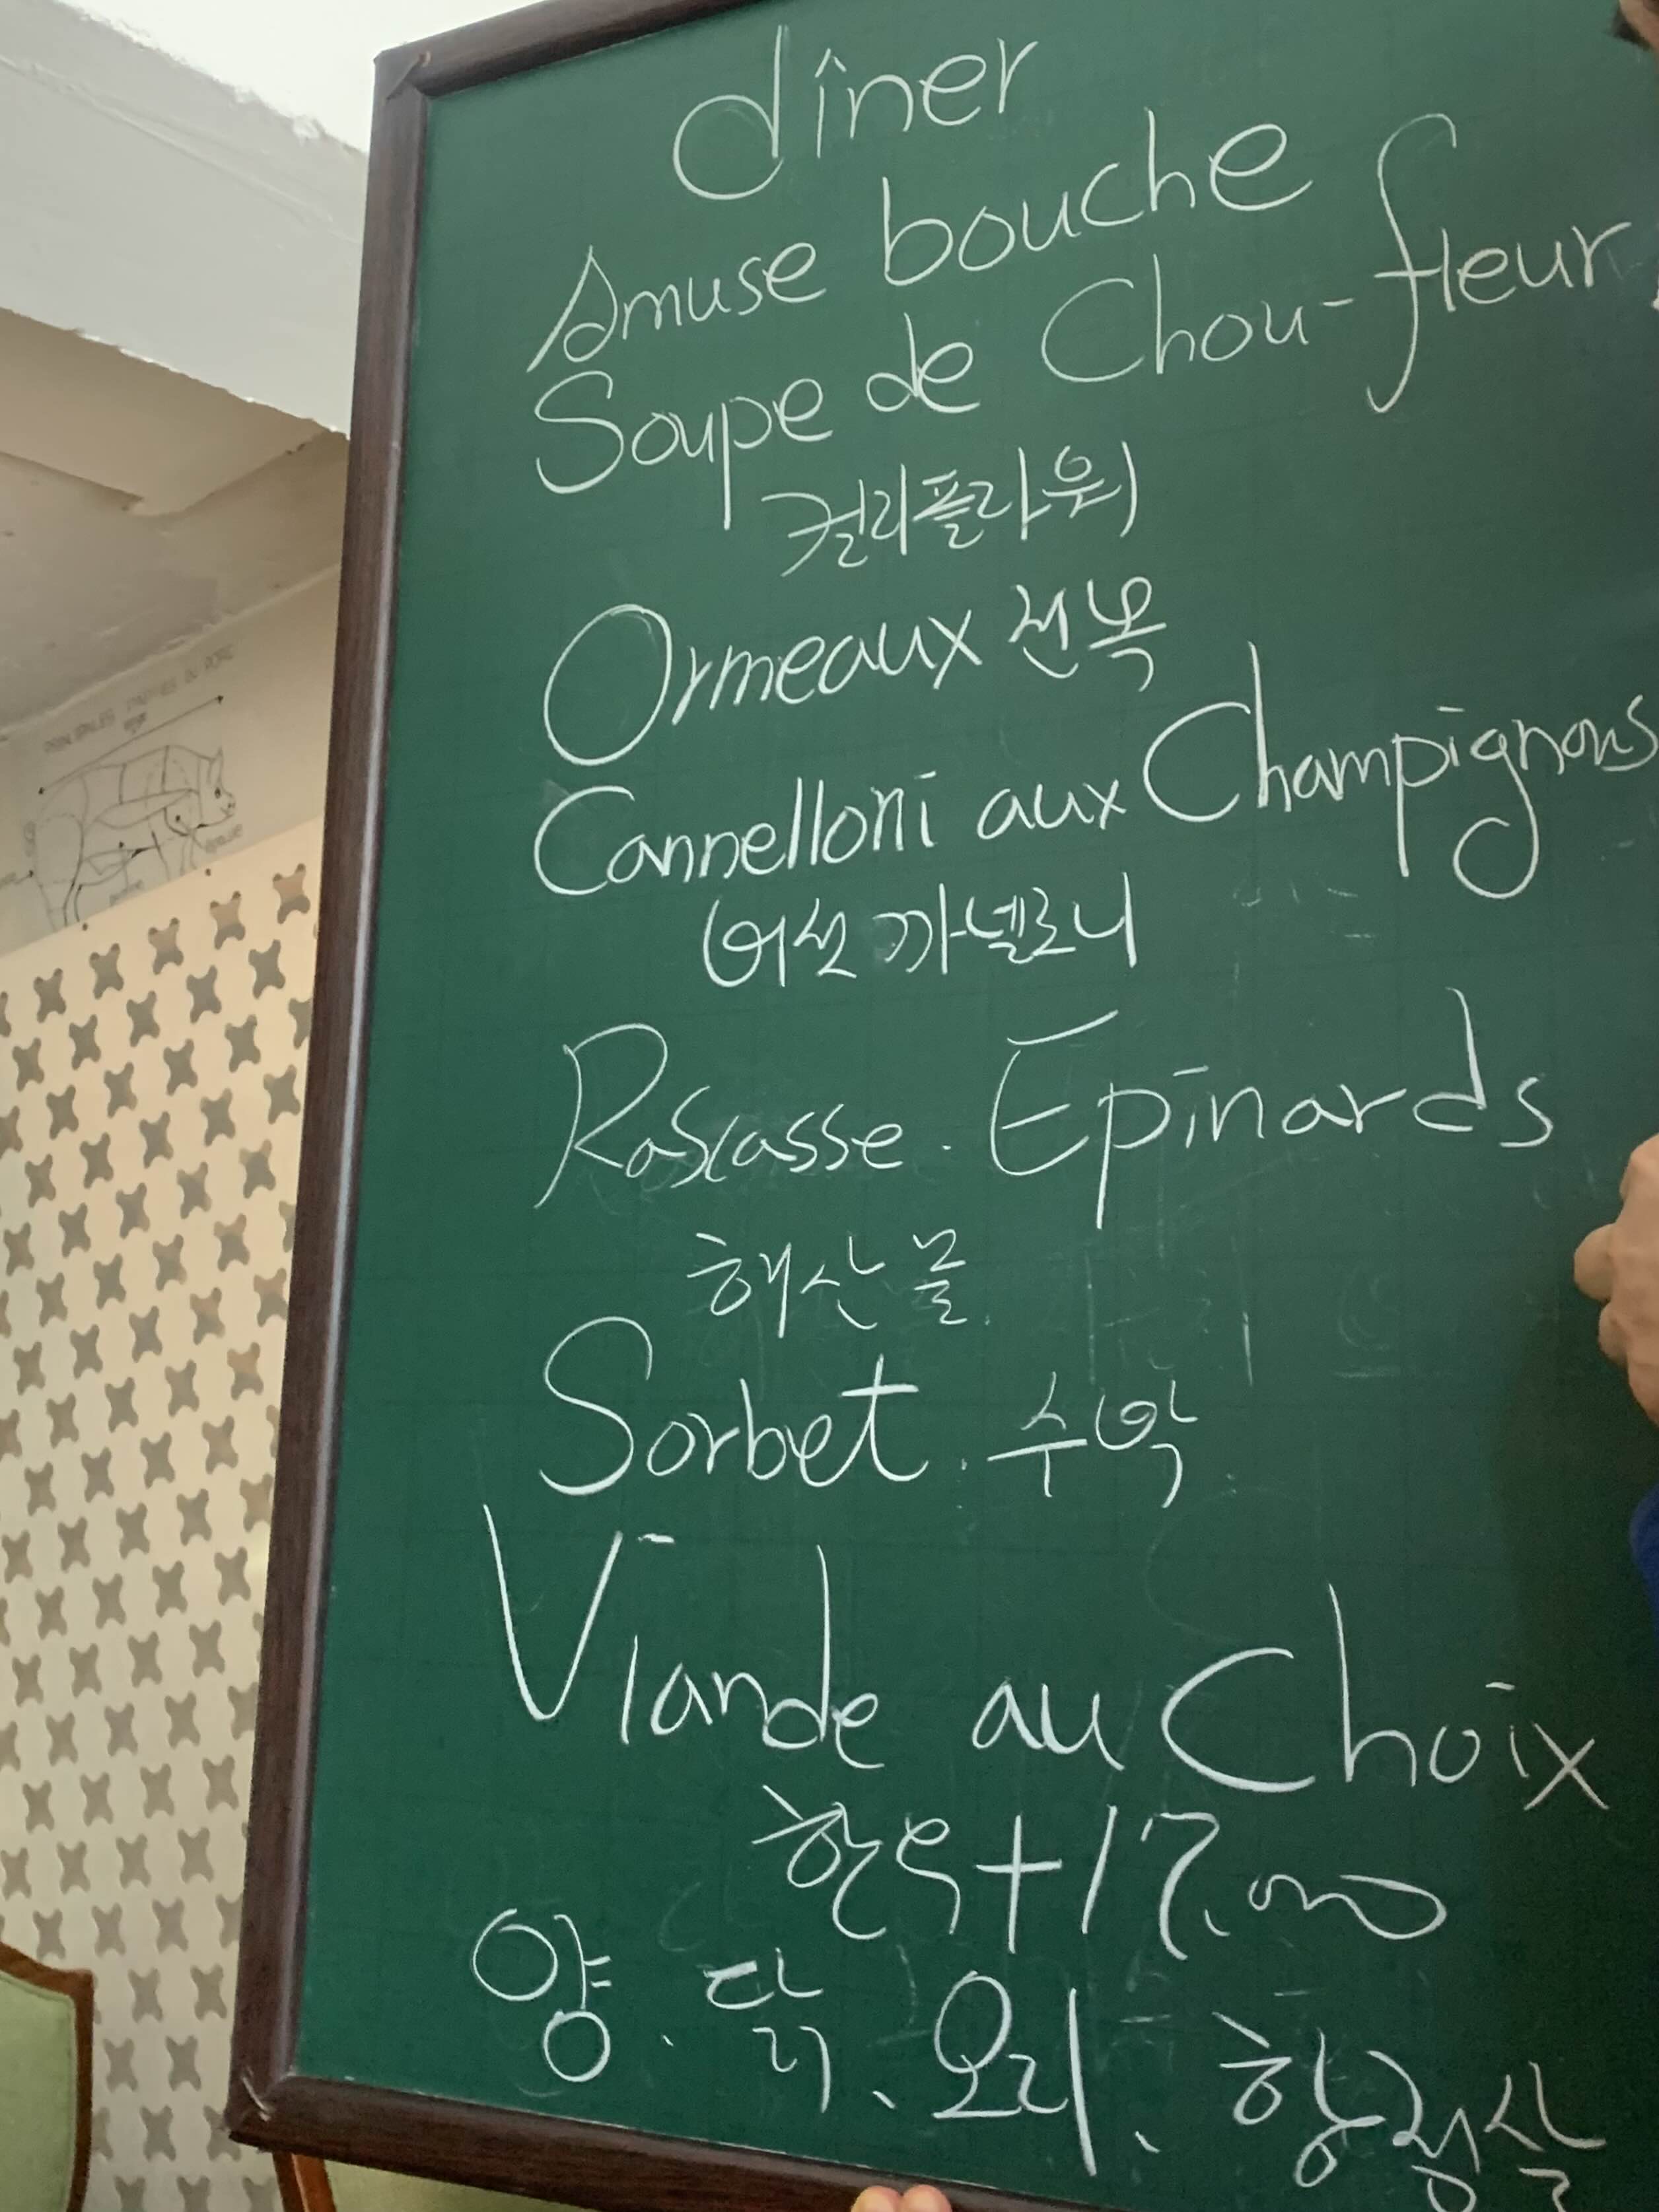 dîner
Amuse bouche
Soupe de Chou-fleur
컬리플라워
Ormeaux 전복
Cannelloni aux Champignons
버섯 까넬로니
Rascasse. Epinards
해산물
Sorbet. 수박
Viande au Choix
한우+17.000
양. 닭. 오리. 항정살